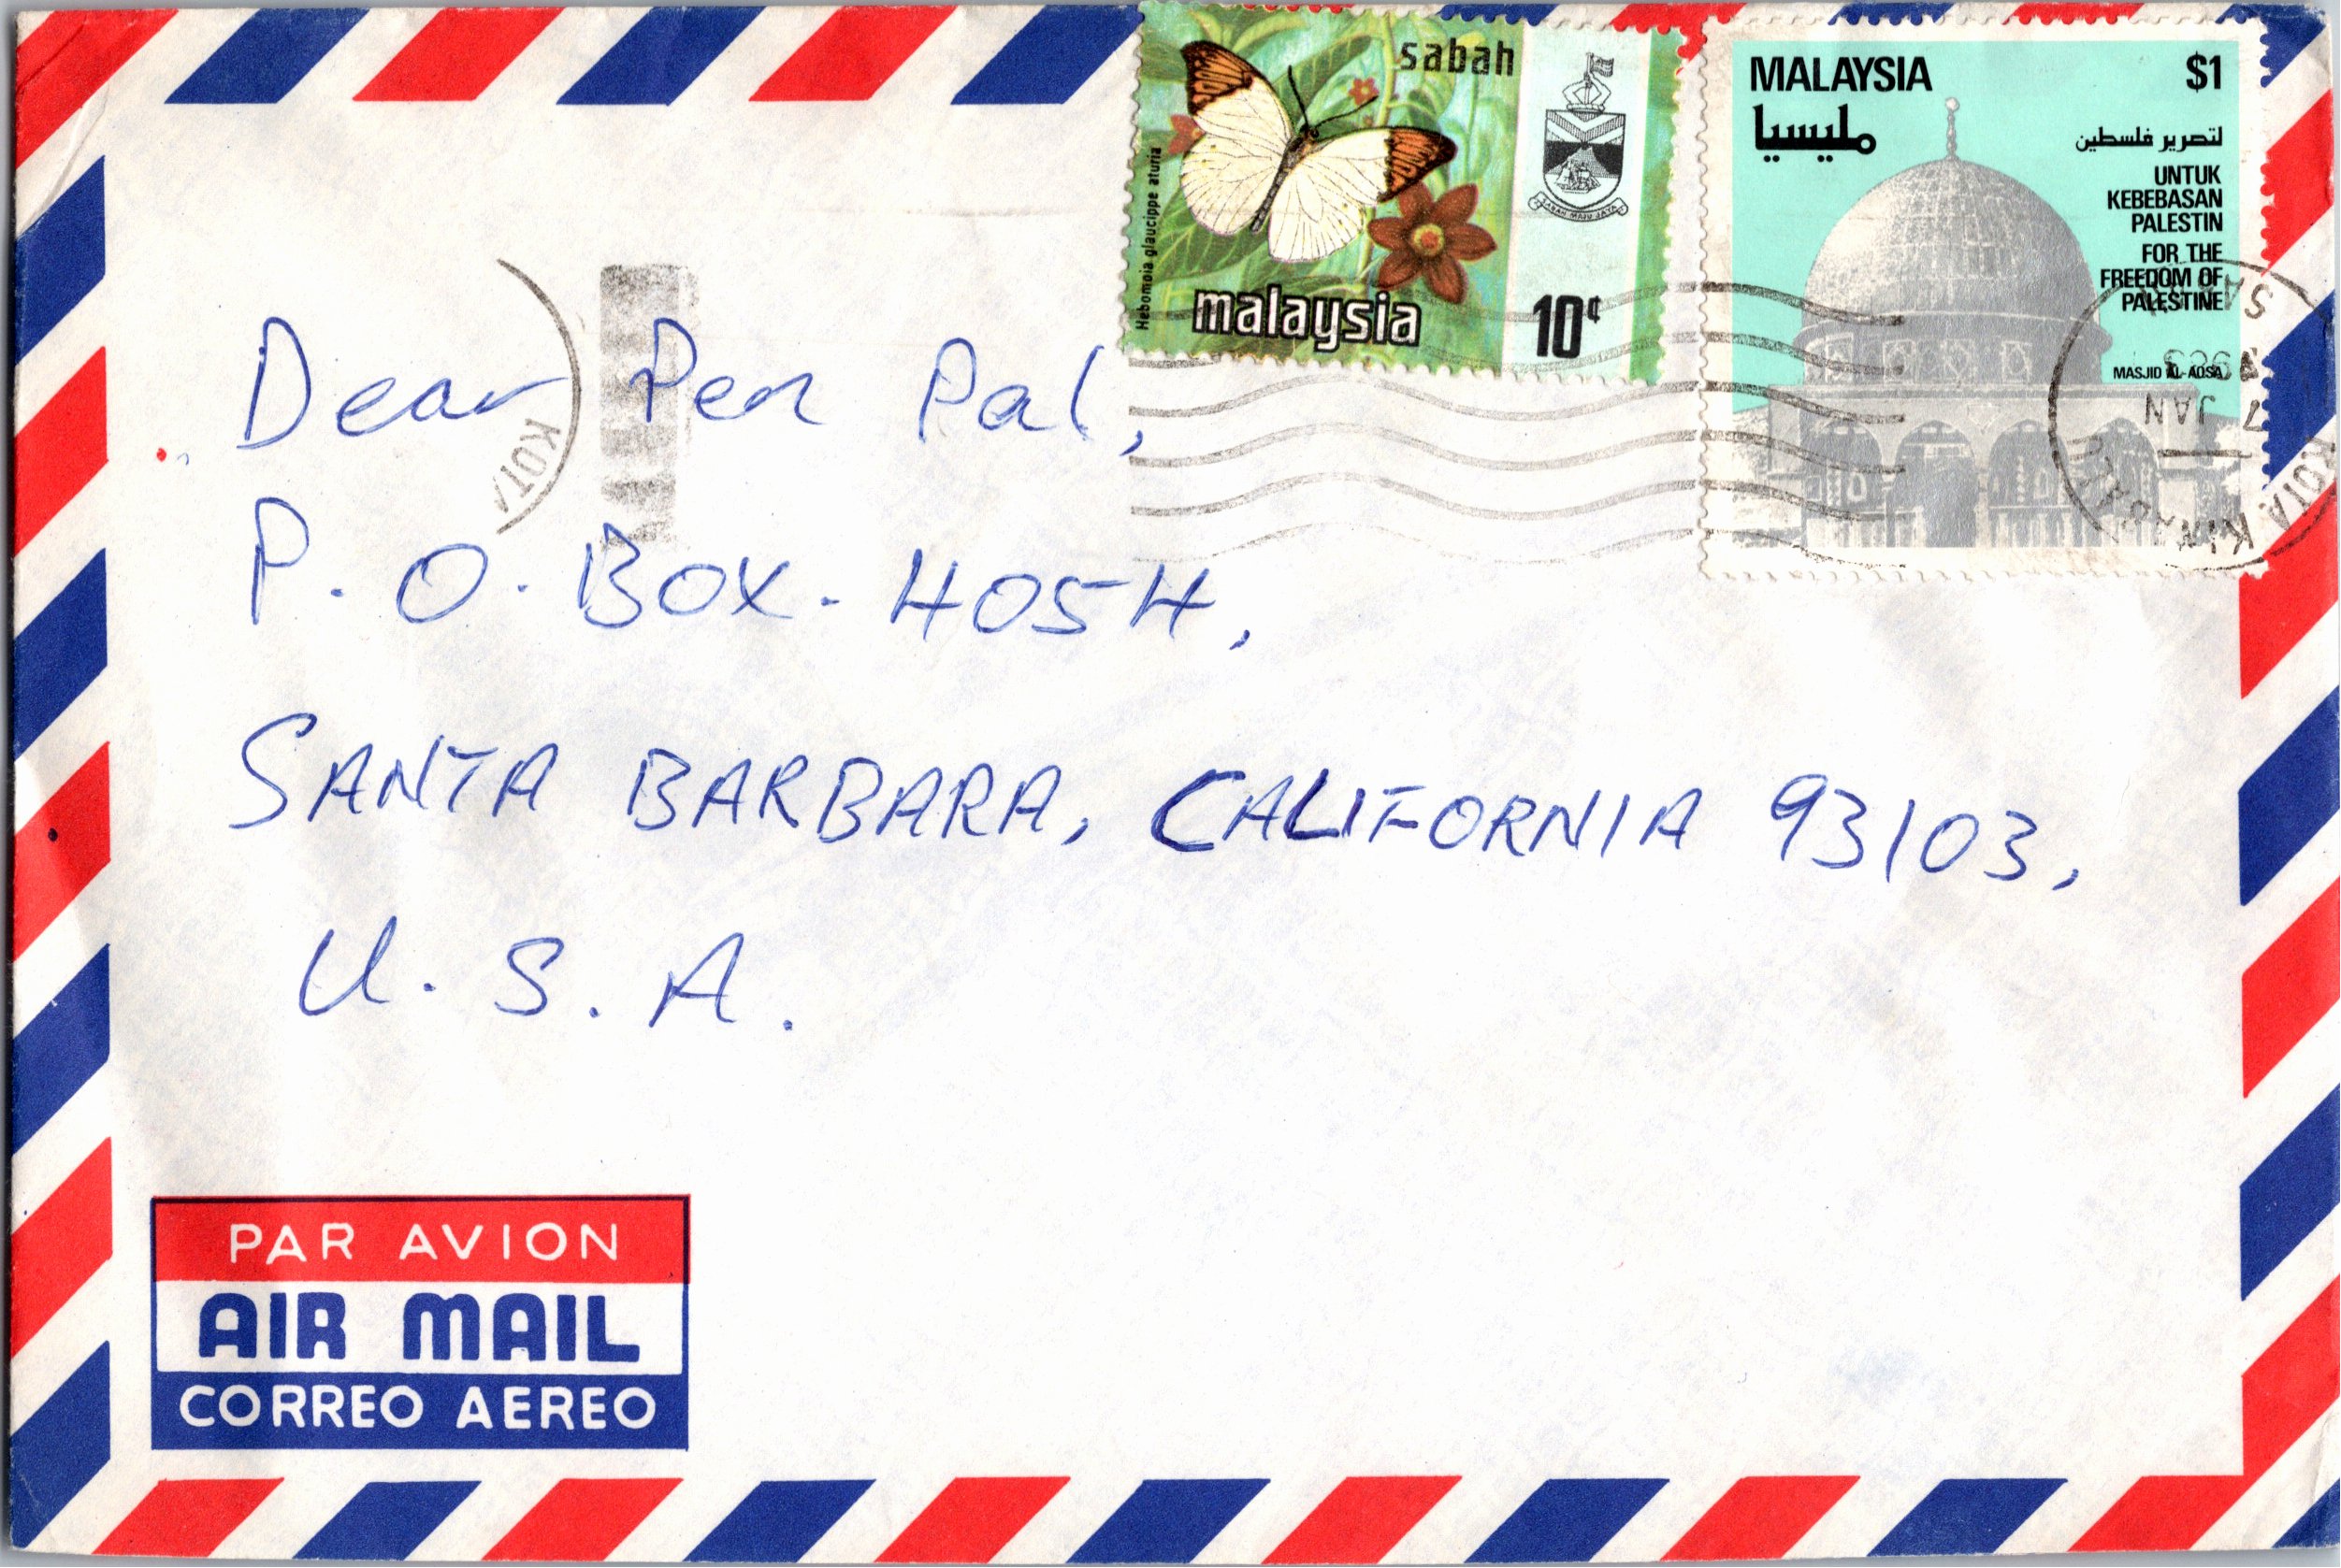 sabah
Hebomoia glaucippe aturia
SABAH MAJU JAYA
malaysia
10¢
MALAYSIA
$1
مليسيا
لتحرير فلسطين
UNTUK
KEBEBASAN
PALESTIN
FOR THE
FREEDOM OF
PALESTINE
MASJID AL-AQSA
KOTA KINABALU
7 JAN
1983
KOTA
Dear Pen Pal,
P. O. BOX. 4054,
SANTA BARBARA, CALIFORNIA 93103,
U. S. A.
PAR AVION
AIR MAIL
CORREO AEREO